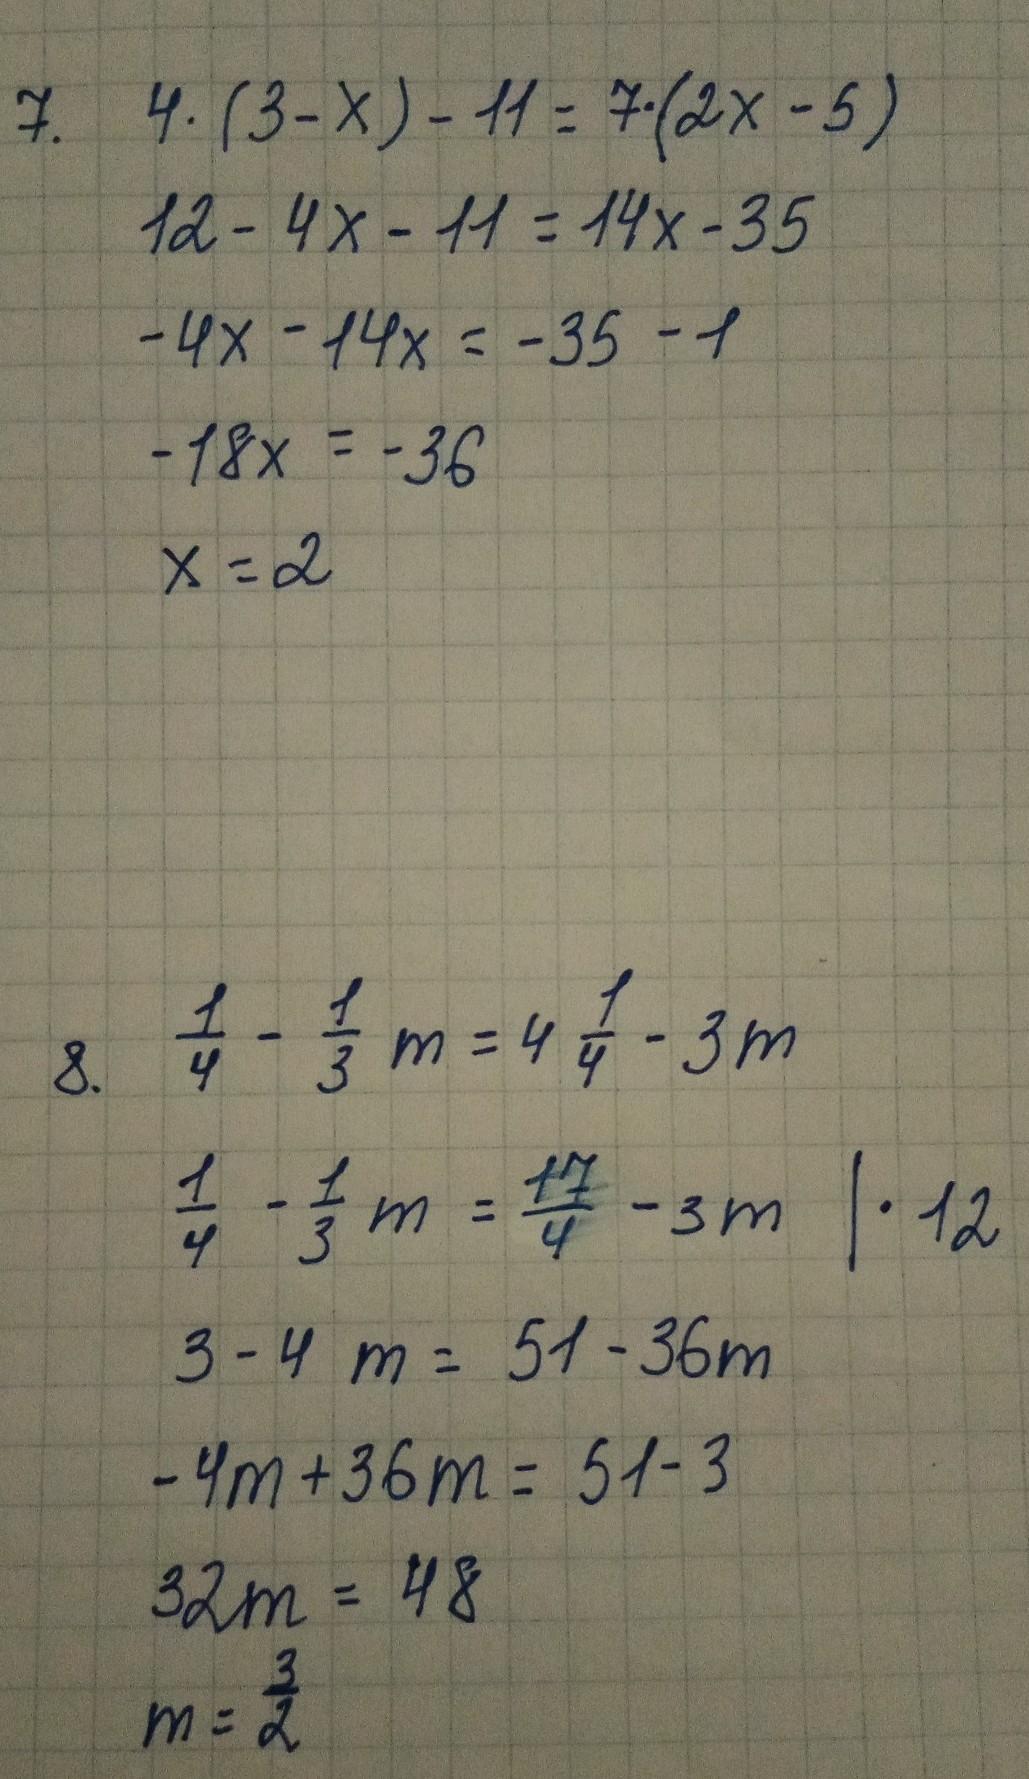 7. 4·(3-x)-11=7·(2x-5)
12-4x-11=14x-35
-4x-14x=-35-1
-18x=-36
x=2
8. 1/4 - 1/3 m = 4 1/4 - 3m
1/4 - 1/3 m = 17/4 - 3m |·12
3-4 m = 51-36m
-4m+36m=51-3
32m=48
m=3/2